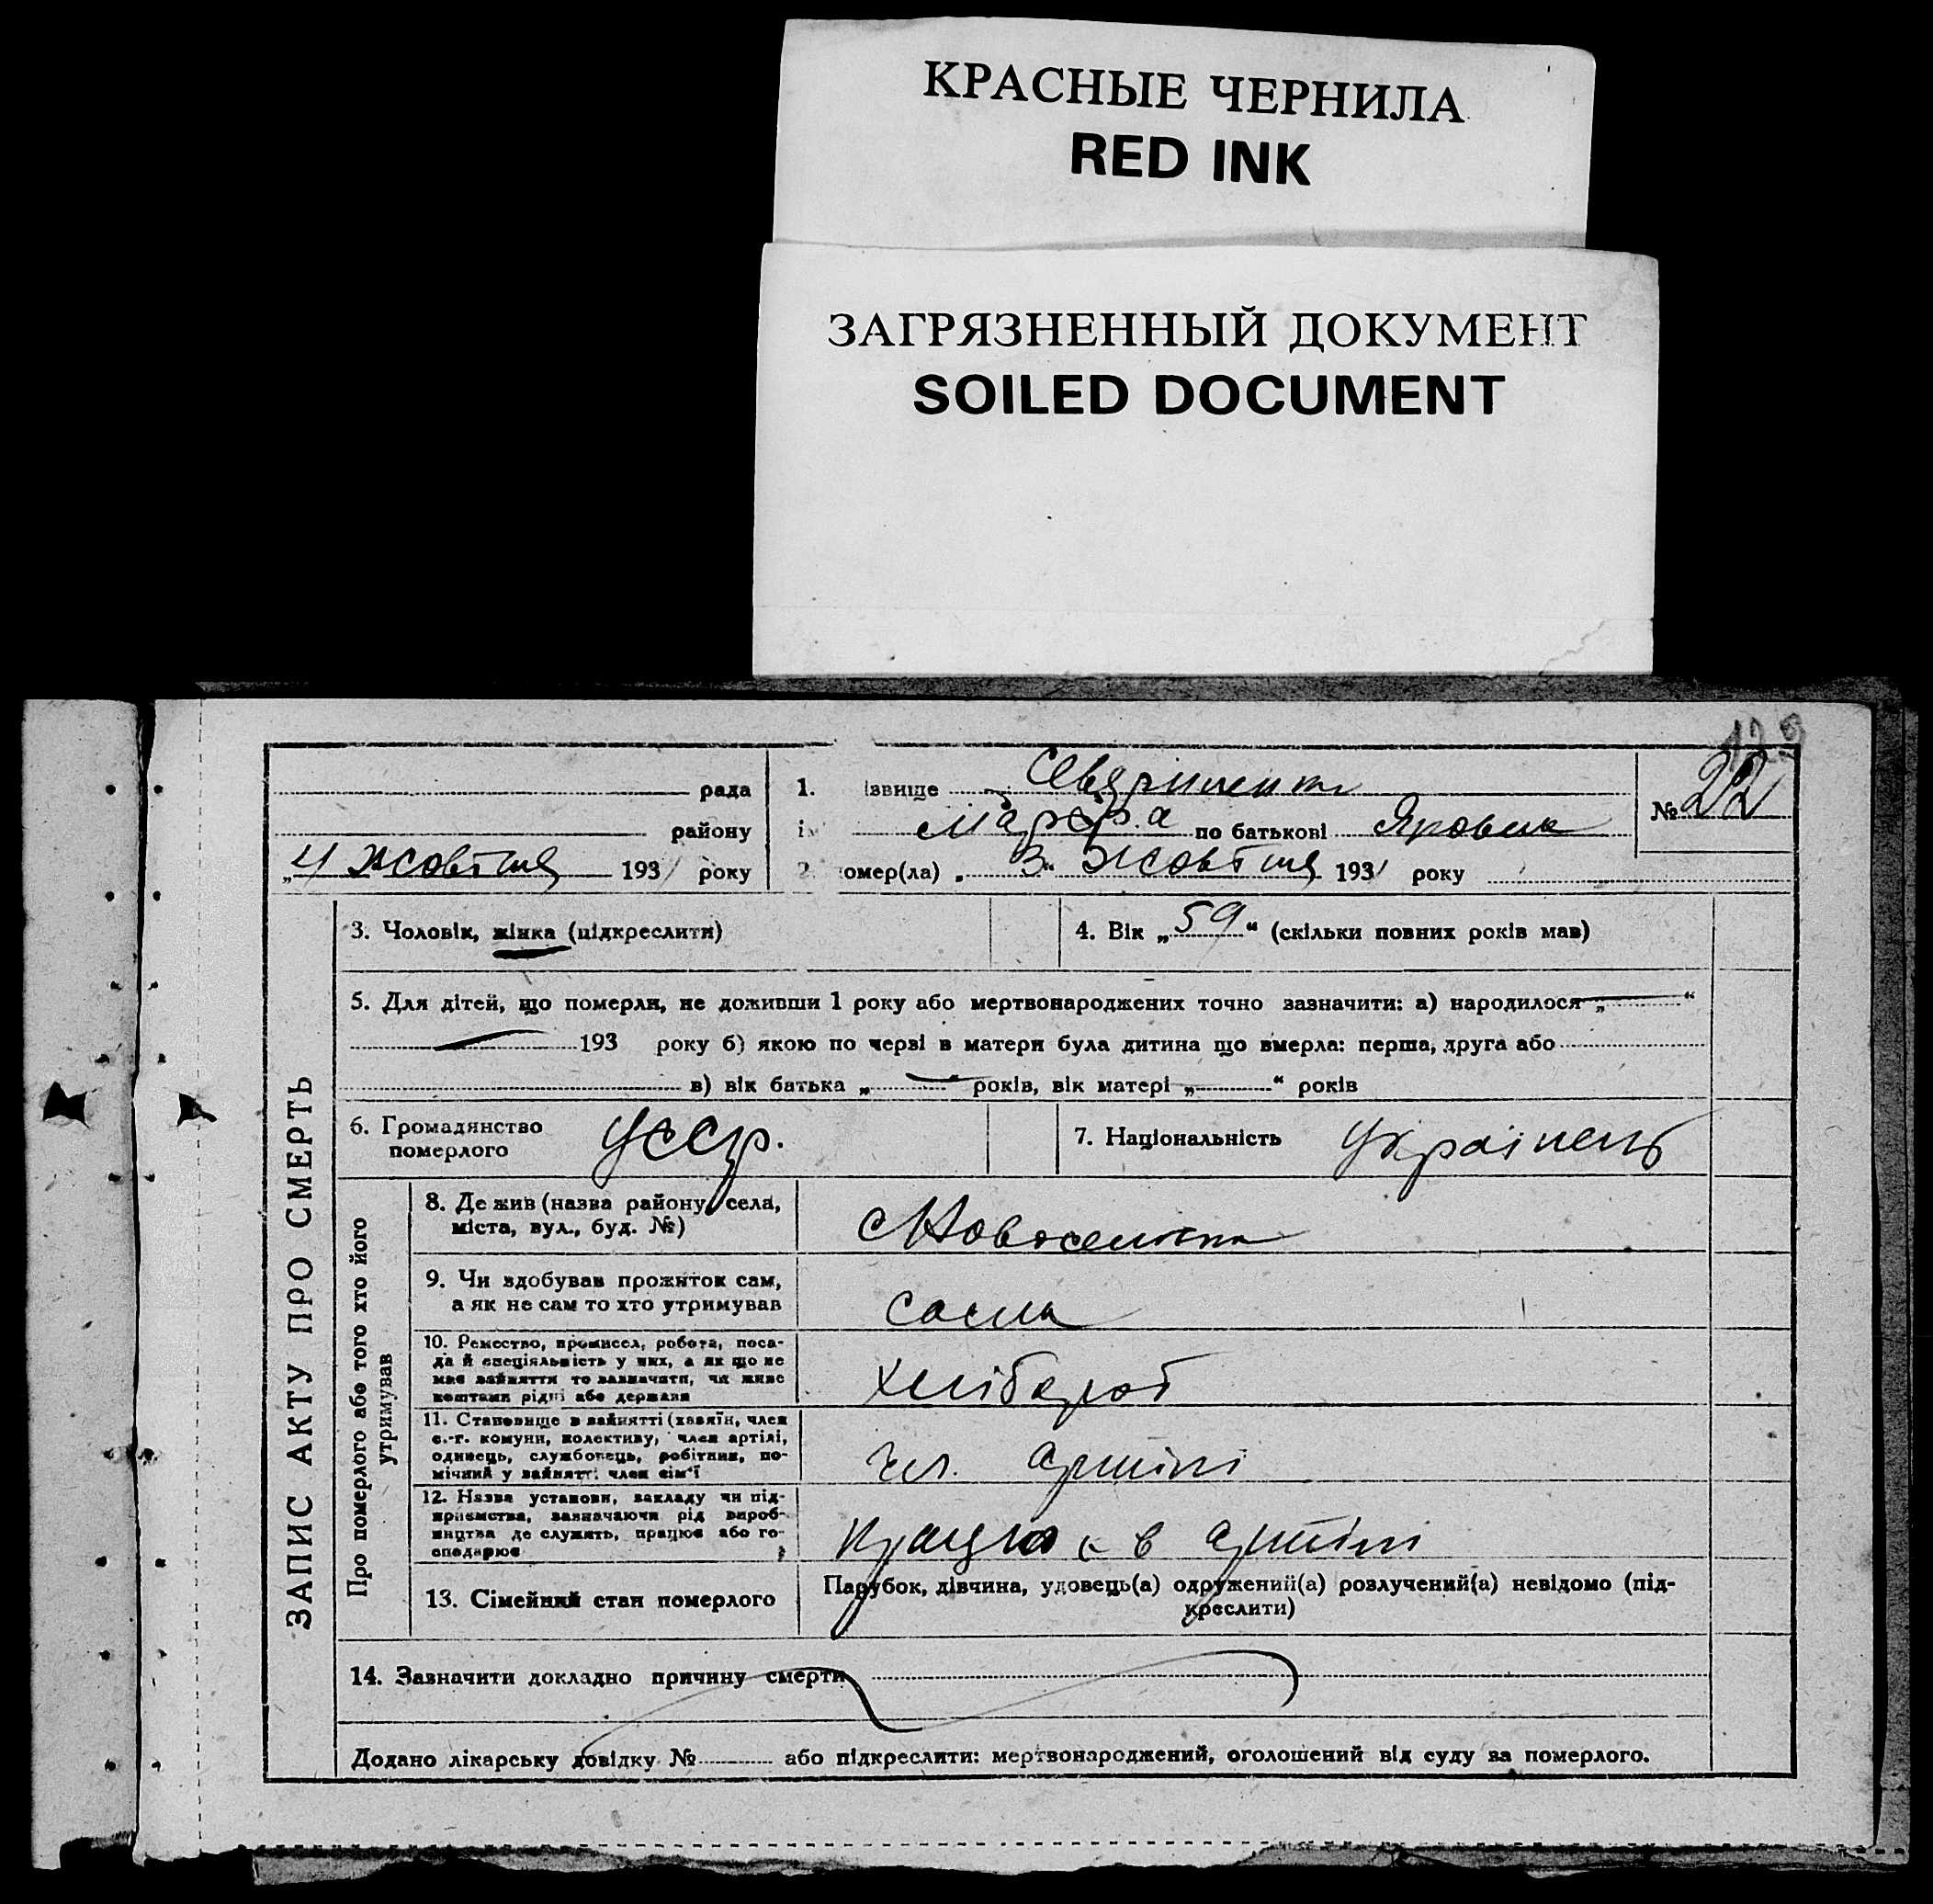 КРАСНЫЕ ЧЕРНИЛА
RED INK
ЗАГРЯЗНЕННЫЙ ДОКУМЕНТ
SOILED DOCUMENT
рада
району
„4 жовтня 1931 року
1. ізвище
Марфа по батькові
2. омер(ла) „3“ жовтня 1931 року
№ 22
ЗАПИС АКТУ ПРО СМЕРТЬ
3. Чоловік, жінка (підкреслити)
4. Вік „59“ (скільки повних років мав)
5. Для дітей, що померли, не доживши 1 року або мертвонароджених точно зазначити: а) народилося „ “
193 року б) якою по черві в матери була дитина що вмерла: перша, друга або
в) вік батька „ “ років, вік матері „ “ років
6. Громадянство
померлого
УССР.
7. Національність Українець
Про померлого або того хто його
утримував
8. Де жив (назва району, села,
міста, вул., буд. №)
с Новоселівка
9. Чи здобував прожиток сам,
а як не сам то хто утримував
сама
10. Ремество, промисел, робота, поса-
да й спеціяльність у них, а як що не
має зайняття то зазначити, чи живе
коштами рідні або держави
хлібороб
11. Становище в зайнятті (хазяїн, член
с.-г. комуни, колективу, член артілі,
одинець, службовець, робітник, по-
мічний у зайнятті член сім'ї
чл. артілі
12. Назва установи, закладу чи під-
приємства, зазначаючи рід вироб-
ництва де служить, працює або го-
сподарює
в артілі
13. Сімейний стан померлого
Парубок, дівчина, удовець(а) одружений(а) розлучений(а) невідомо (під-
креслити)
14. Зазначити докладно причину смерти
Додано лікарську довідку № або підкреслити: мертвонароджений, оголошений від суду за померлого.